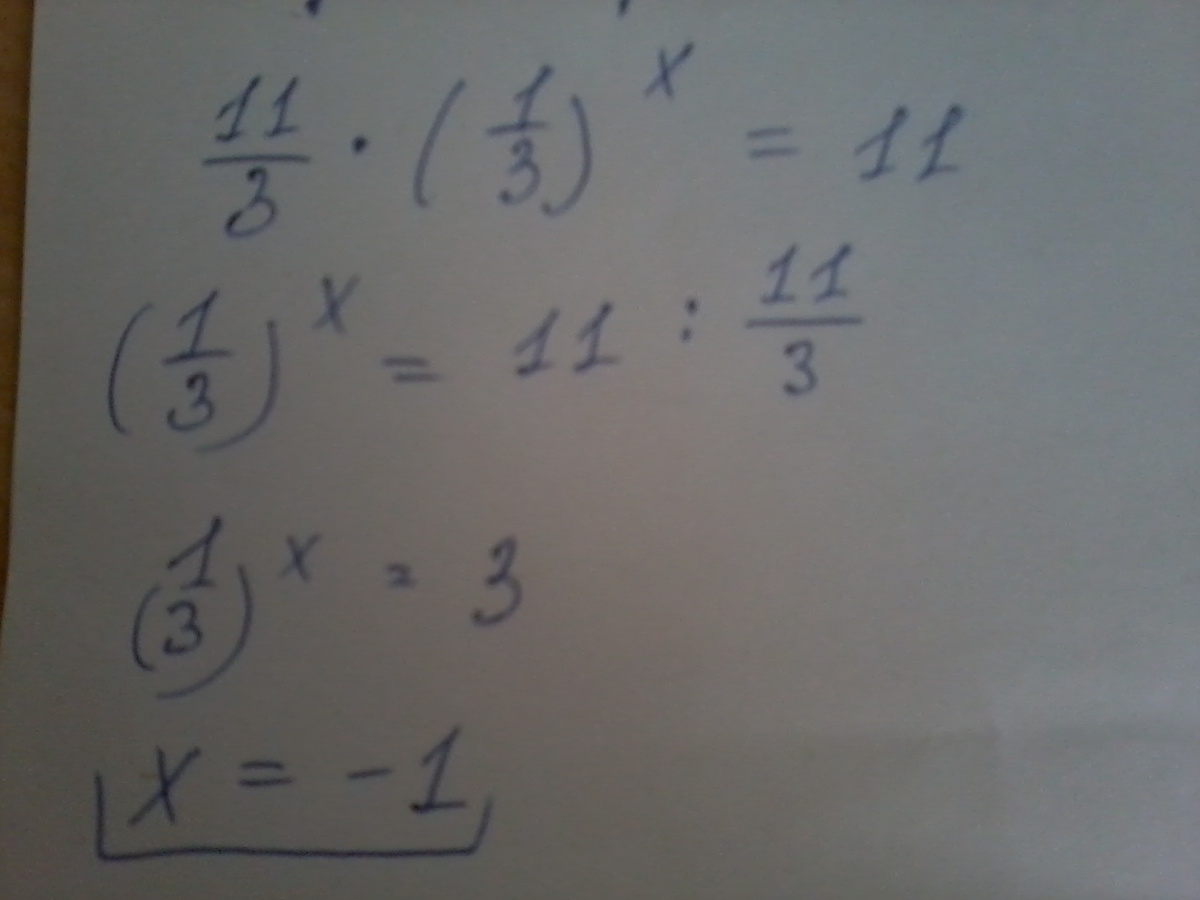 11/3 · (1/3)^x = 11
(1/3)^x = 11 : 11/3
(1/3)^x = 3
x = -1